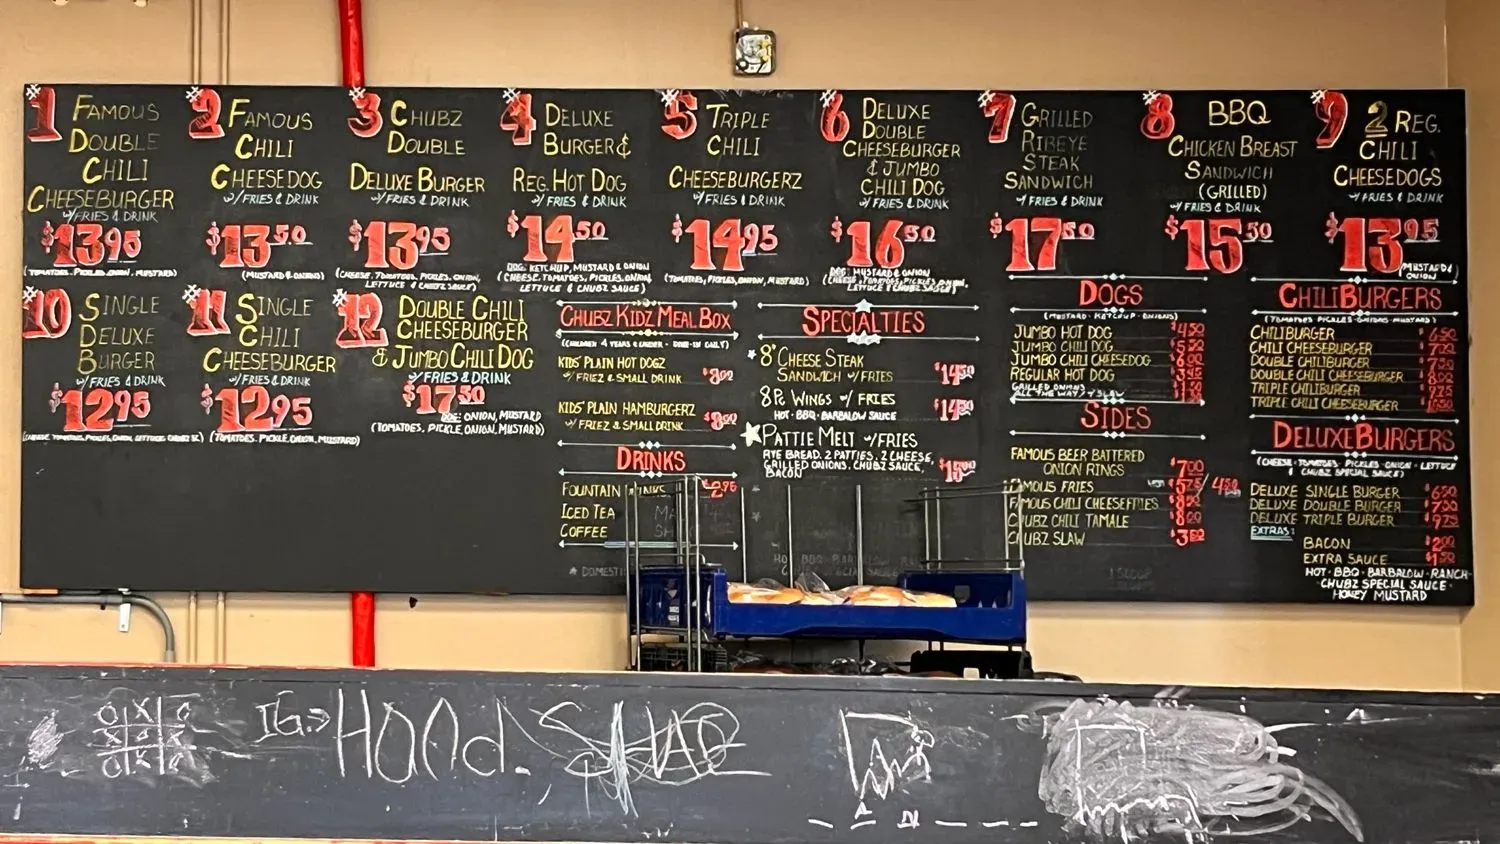 #1 FAMOUS
DOUBLE
CHILI
CHEESEBURGER
W/FRIES & DRINK
$13.95
(TOMATOES, PICKLES, ONION, MUSTARD)
#2 FAMOUS
CHILI
CHEESEDOG
W/FRIES & DRINK
$13.50
(MUSTARD & ONIONS)
#3 CHUBZ
DOUBLE
DELUXE BURGER
W/FRIES & DRINK
$13.95
(CHEESE, TOMATOES, PICKLES, ONION,
LETTUCE & CHUBZ SAUCE)
#4 DELUXE
BURGER &
REG. HOT DOG
W/FRIES & DRINK
$14.50
DOG: KETCHUP, MUSTARD & ONION
(CHEESE, TOMATOES, PICKLES, ONION,
LETTUCE & CHUBZ SAUCE)
#5 TRIPLE
CHILI
CHEESEBURGERZ
W/FRIES & DRINK
$14.95
(TOMATOES, PICKLES, ONION, MUSTARD)
#6 DELUXE
DOUBLE
CHEESEBURGER
& JUMBO
CHILI DOG
W/FRIES & DRINK
$16.50
DOG: MUSTARD & ONION
(CHEESE, TOMATOES, PICKLES, ONION,
LETTUCE & CHUBZ SAUCE)
#7 GRILLED
RIBEYE
STEAK
SANDWICH
W/FRIES & DRINK
$17.50
#8 BBQ
CHICKEN BREAST
SANDWICH
(GRILLED)
W/FRIES & DRINK
$15.50
#9 2 REG.
CHILI
CHEESEDOGS
W/FRIES & DRINK
$13.95
(MUSTARD &
ONION)
#10 SINGLE
DELUXE
BURGER
W/FRIES & DRINK
$12.95
#11 SINGLE
CHILI
CHEESEBURGER
W/FRIES & DRINK
$12.95
(TOMATOES, PICKLE, ONION, MUSTARD)
#12 DOUBLE CHILI
CHEESEBURGER
& JUMBO CHILI DOG
W/FRIES & DRINK
$17.50
DOG: ONION, MUSTARD
(TOMATOES, PICKLE, ONION, MUSTARD)
CHUBZ KIDZ MEAL BOX
KIDS' PLAIN HOT DOGZ
W/FRIEZ & SMALL DRINK $8.00
KIDS' PLAIN HAMBURGERZ
W/FRIEZ & SMALL DRINK $8.00
DRINKS
FOUNTAIN $2.95
ICED TEA
COFFEE
SPECIALTIES
8" CHEESE STEAK
SANDWICH W/FRIES $14.50
8 Pc WINGS W/ FRIES
HOT · BBQ · BARBALOW SAUCE $14.50
PATTIE MELT W/FRIES
RYE BREAD, 2 PATTIES, 2 CHEESE,
GRILLED ONIONS, CHUBZ SAUCE,
BACON
DOGS
(MUSTARD · KETCHUP · ONIONS)
JUMBO HOT DOG $4.50
JUMBO CHILI DOG
JUMBO CHILI CHEESEDOG
REGULAR HOT DOG
GRILLED ONIONS
ALL THE WAY / SLAW
SIDES
FAMOUS BEER BATTERED
ONION RINGS $7.00
FAMOUS FRIES $5.75 / 4.50
FAMOUS CHILI CHEESEFRIES
CHUBZ CHILI TAMALE
CHUBZ SLAW $3.50
CHILIBURGERS
(TOMATOES · PICKLES · ONIONS · MUSTARD)
CHILIBURGER $6.50
CHILI CHEESEBURGER
DOUBLE CHILIBURGER
DOUBLE CHILI CHEESEBURGER
TRIPLE CHILIBURGER
TRIPLE CHILI CHEESEBURGER
DELUXEBURGERS
(CHEESE · TOMATOES · PICKLES · ONION · LETTUCE
& CHUBZ SPECIAL SAUCE)
DELUXE SINGLE BURGER $6.50
DELUXE DOUBLE BURGER $7.50
DELUXE TRIPLE BURGER $9.25
EXTRAS:
BACON $2.00
EXTRA SAUCE
HOT · BBQ · BARBALOW · RANCH ·
CHUBZ SPECIAL SAUCE ·
HONEY MUSTARD
IG: